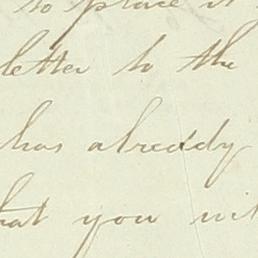 to place it
letter to the
has already
that you wit